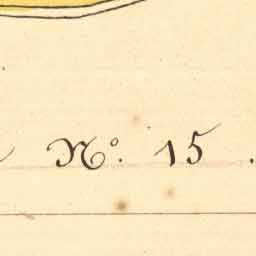 Nº. 15 .